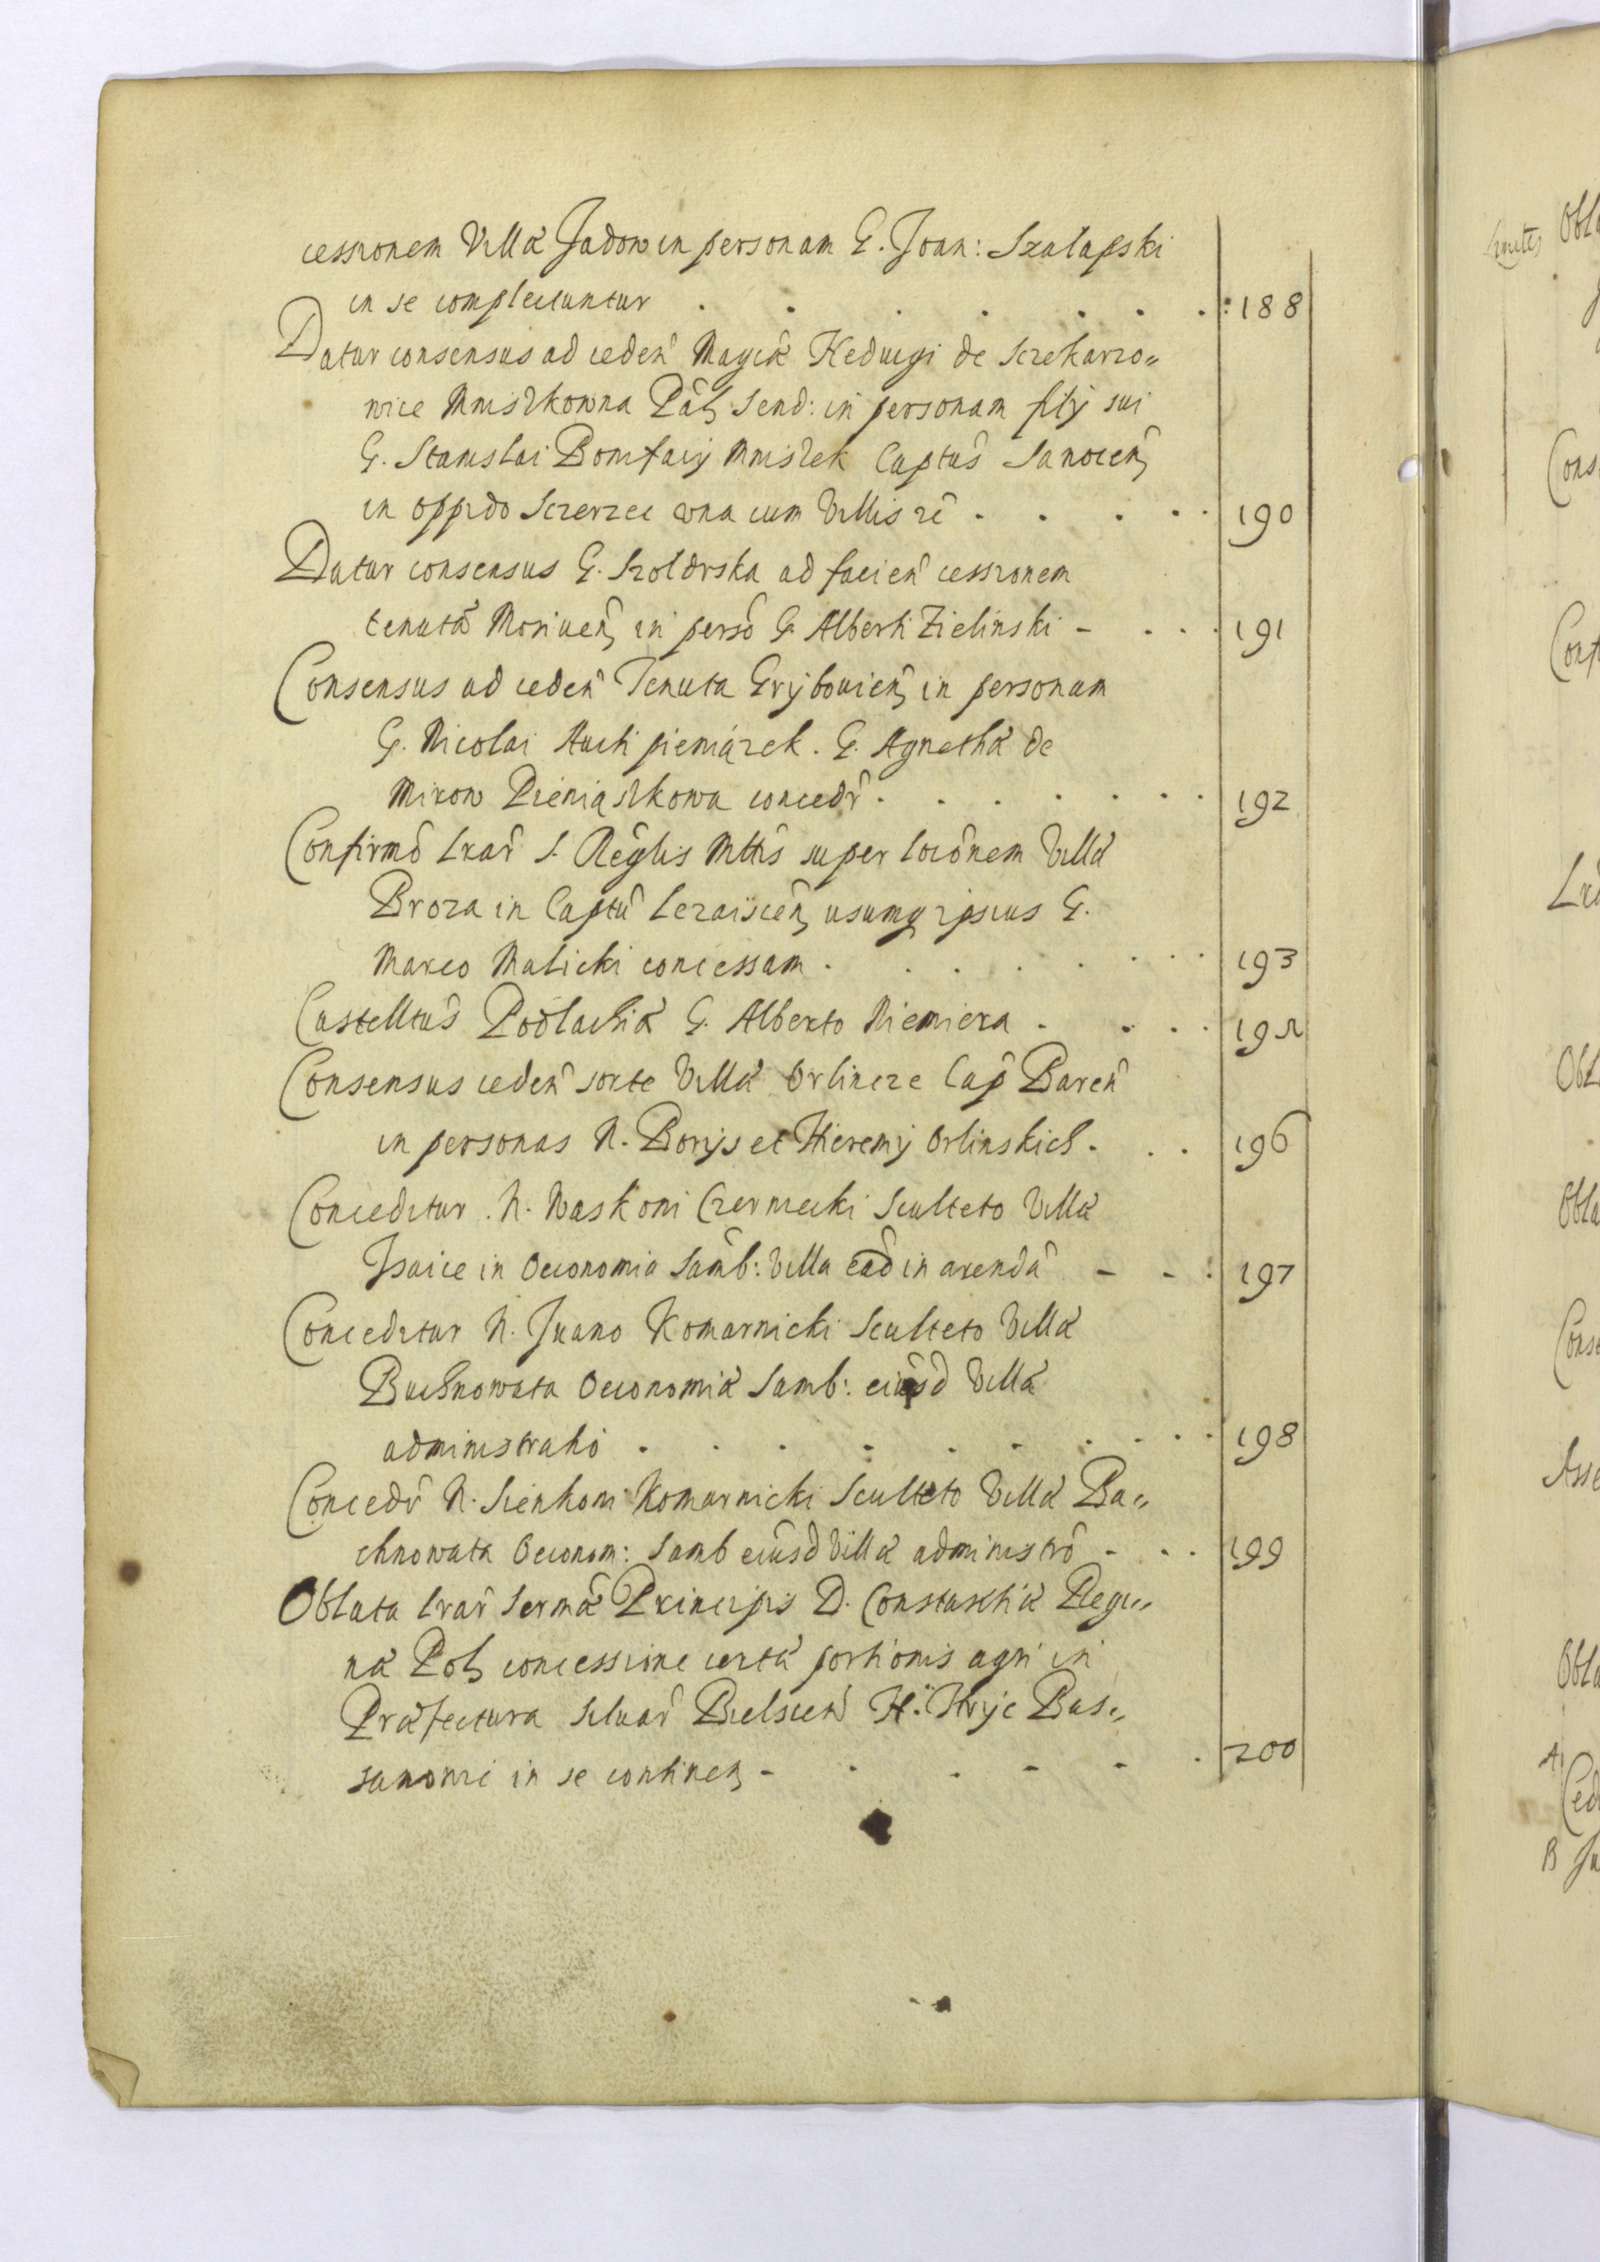 cessionem Villæ Jadow in personam G. Joan: Szalapski
in se complectuntur . . . . . . . : 188
Datur consensus ad ceden̂ Magcæ Heduigi de Sczekarzo„
wice Mniszkowna Pal̂ Send: in personam filÿ sui
G. Stanislai Bonifacÿ Mniszek Captus̑ Sanocen̑
in oppido Sczerzec una cum Villis zc̑ . . . . . 190
Datur consensus G. Szoldrska ad facien̂ cessionem
tenutæ̑ Mosiuen̑ in persȏ G. Alberti Zielinski - . . . 191
Consensus ad ceden̂ Tenuta Grÿbouien̑ in personam
G. Nicolai pieniązek. G. Agnethæ de
Mirow Pieniąszkowa concedr̂ . . . . . . . . 192
Confirmȏ Lraȓ S. Reg̑lis Mttis̑ super locȏnem Villæ
Broza in Captȗ Lezaiscen̑ usumq ipsius G.
Marco Malicki concessam . . . . . . . . 193
Castelltus̑ Podlachiæ G. Alberto Niemiera . . . . 19
Consensus ceden̂ sorte Villæ Orlincze Cap̑ Baren̂
in personas N. Borÿs et Hieremÿ Orlinskich . . . 196
Conceditur . N. Waskoni Czerniecki Sculteto Villæ
Isaice in Oeconomia Sam̑b: Villa ead̑ in arendȃ - - : 197
Conceditur N. Juano Komarnicki Sculteto Villæ
Buchnowata Oeconomiæ Samb: eiusd̑ Villæ
administratio . . . . . . . . . . 198
Concedȓ N. Sienkoni Komarnicki Sculteto Villæ Ba„
chnowata Oeconom: Samb eiȗsd Villæ administrȏ - . . 199
Oblata Lraȓ Sermæ̑ Principis D. Constantiæ Regi„
næ Pol̑ concessione certæ portionis agri in
Præfectura Siluaȓ Bielscen̂ H. Hrÿc Bas„
sanowi in se continen̑ - . . - - . 200